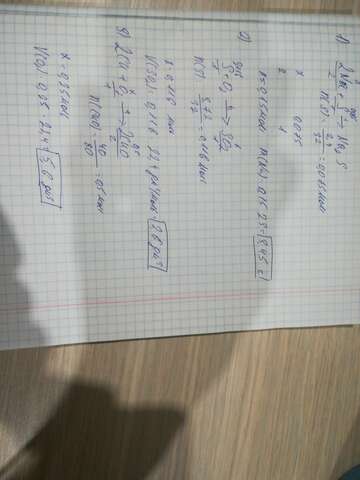 1)
2Na + S → Na₂S
n(S) = /32 = 0.075 моль
x 0.075
2 1
x = 0.15 моль m(Na) = 0.15 · 23 = 3,45 г
2)
S + O₂ → SO₂
n(S) = /32 = 0.118 моль
x = 0,118 моль
V(SO₂) = 0,118 · 22,4 дм³/моль = 2,6 дм³
3) 2Cu + O₂ → 2CuO
n(CuO) = 40/80 = 0,5 моль
x = 0,25 моль
V(O₂) = 0,25 · 22,4 = 5,6 дм³